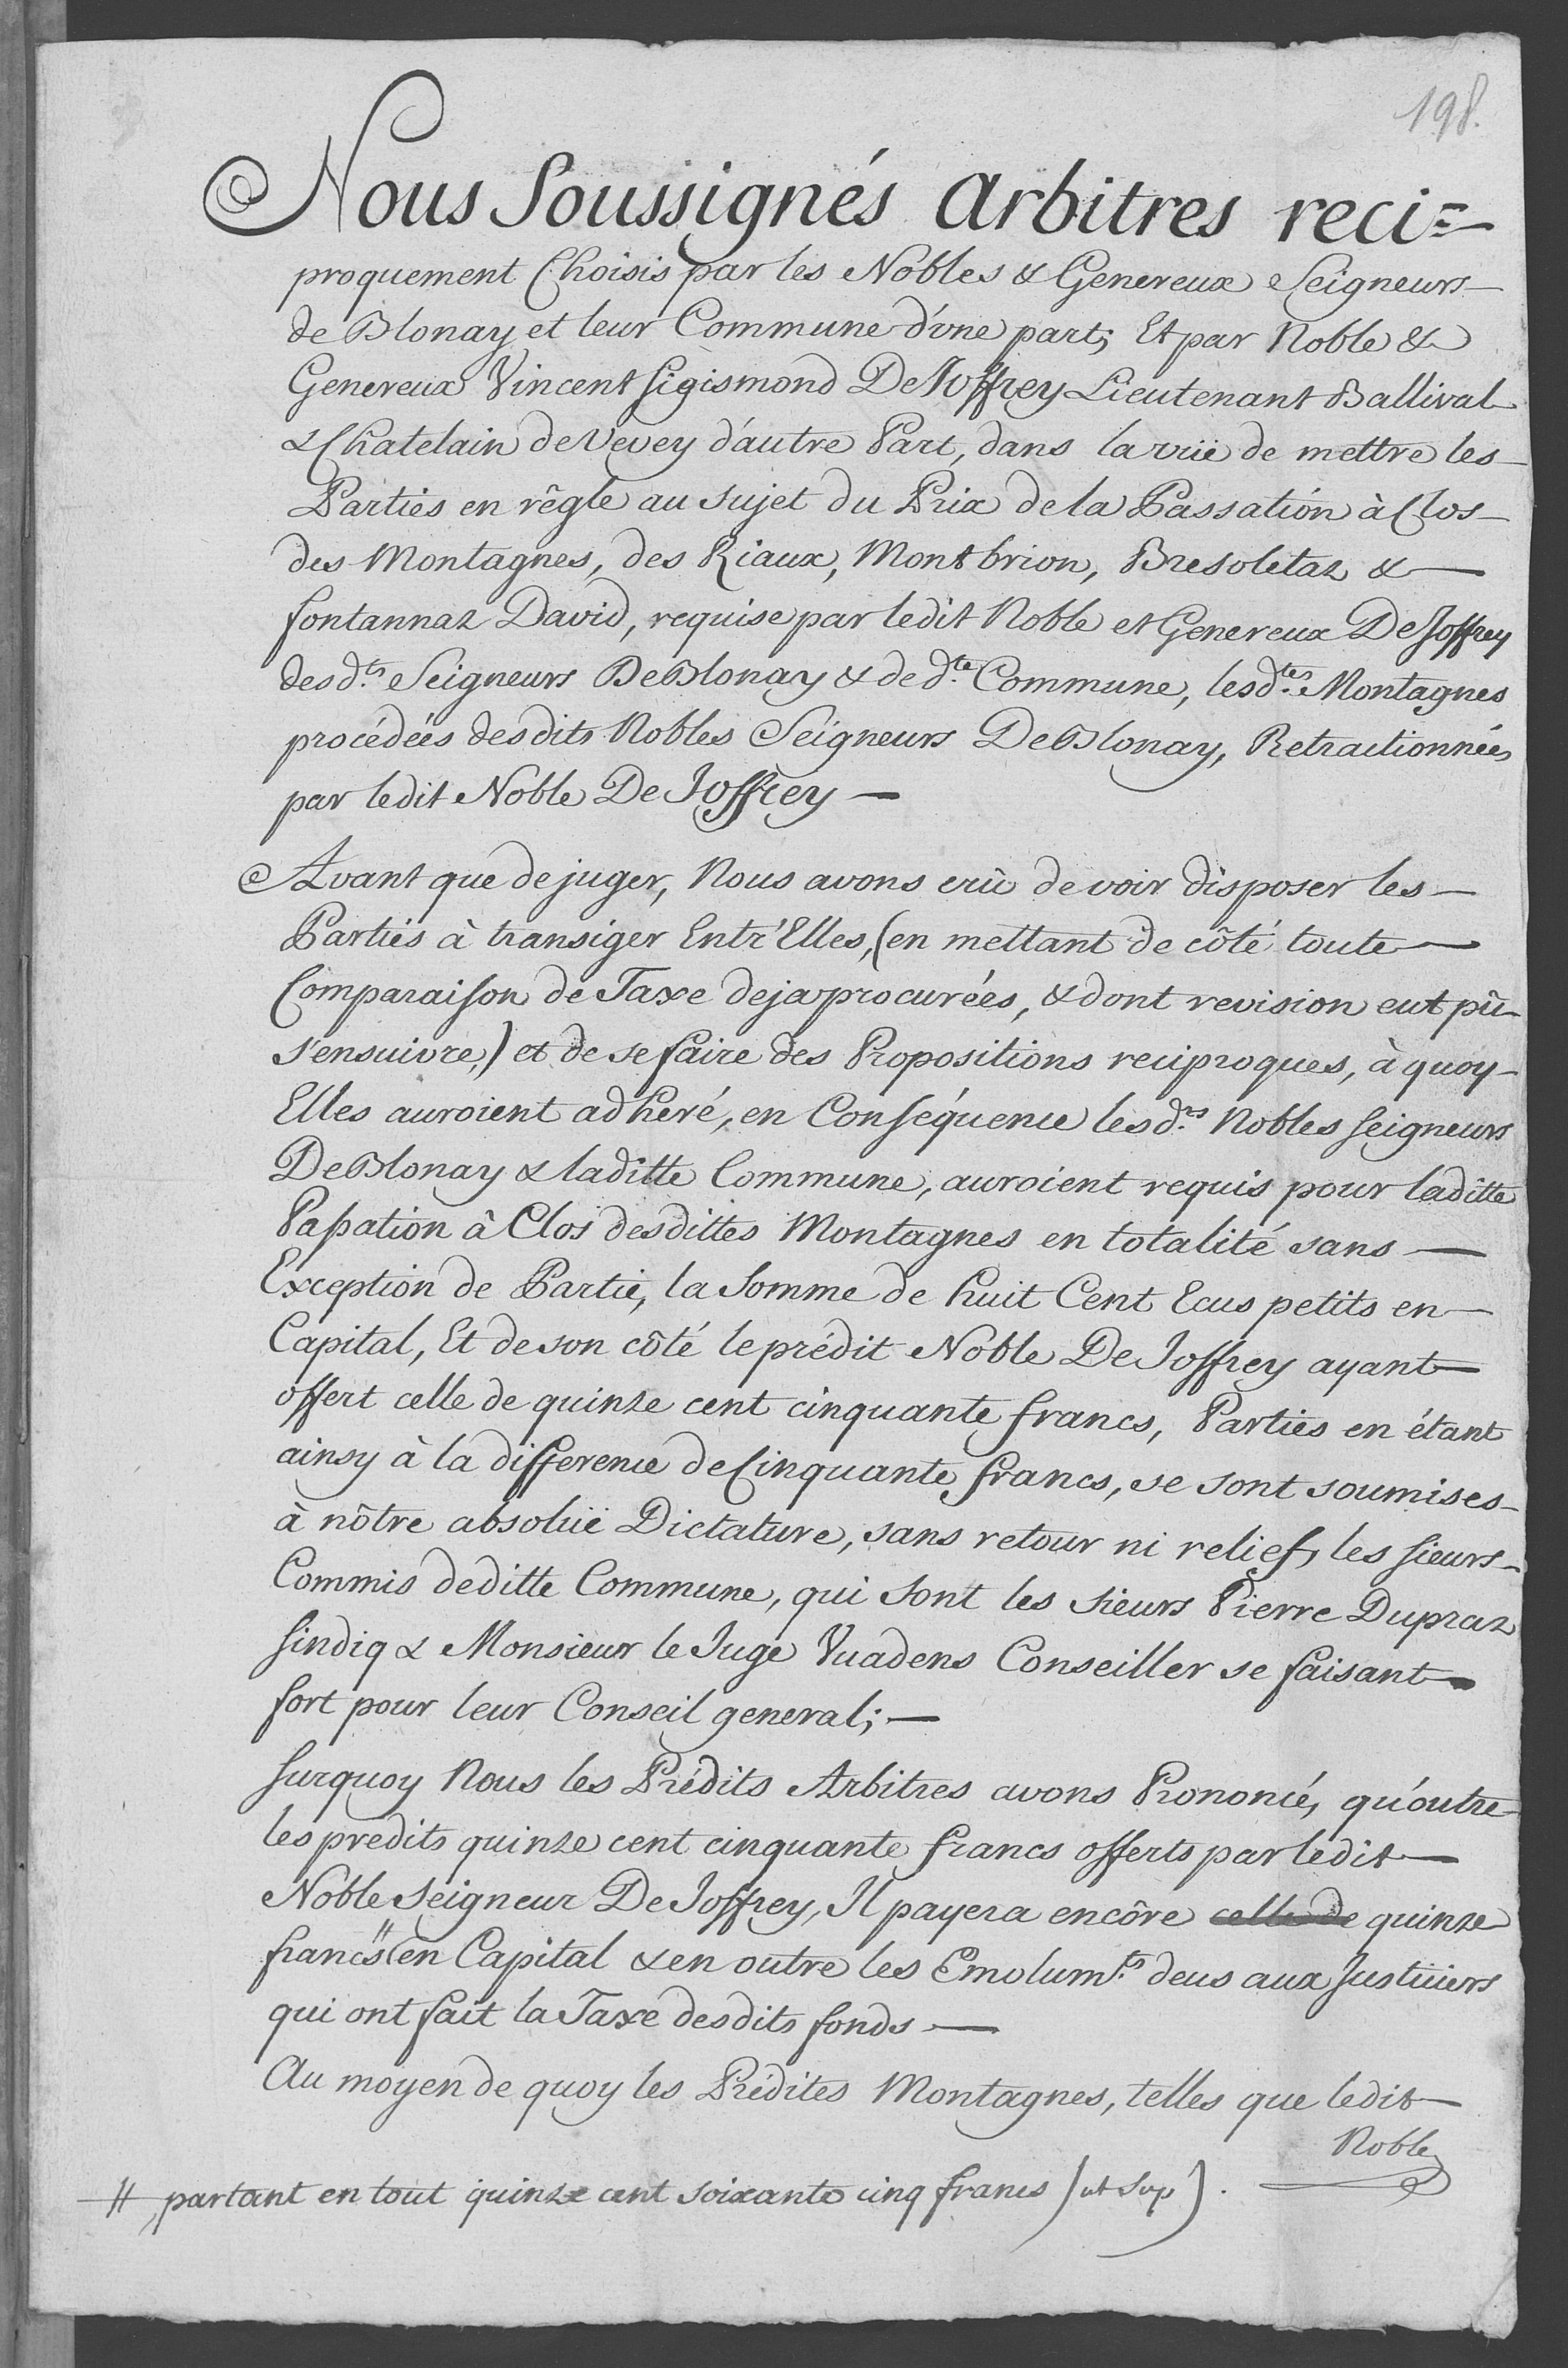 198.
Nous Soussignés Arbitres reci=
proquement Choisis par les Nobles & Genereux Seigneurs
de Blonay et leur Commune d'une part; Et par Noble &
Genereux Vincent Sigismond De Joffrey Lieutenant Ballival
& Chatelain de Vevey d'autre Part, dans la vüe de mettre les
Parties en rêgle au sujet du Prix de la Passation à Clos
des Montagnes, des Riaux, Montbrion, Bresoletaz &
fontannaz David, requise par ledit Noble et Genereux De Joffrey
des d.ts Seigneurs De Blonay & de d.te Commune, lesd.tes Montagnes
procédées desdits Nobles Seigneurs De Blonay, Retractionnées
par ledit Noble De Joffrey
Avant que de juger, Nous avons crû devoir disposer les
Parties à transiger Entr'Elles, (en mettant de côté toute
Comparaison de Taxe deja procurées, & dont revision eut pû
s'ensuivre,) et de se faire des Propositions reciproques, à quoy
Elles auroient adheré, en Conséquence lesd.ts Nobles Seigneurs
De Blonay & laditte Commune, auroient requis pour laditte
Passation à Clos desdittes Montagnes en totalité sans
Exception de Partie, la Somme de huit Cent Ecus petits en
Capital, Et de son côté le prédit Noble De Joffrey ayant
offert celle de quinze cent cinquante francs, Parties en étant
ainsy à la difference de Cinquante francs, se sont soumises
à nôtre absolüe Dictature, sans retour ni relief, les Sieurs
Commis deditte Commune, qui sont les Sieurs Pierre Dupraz
Sindiq & Monsieur le Juge Vuadens Conseiller se faisant
fort pour leur Conseil general;
Surquoy Nous les Prédits Arbitres avons Prononcé, qu'outre
les predits quinze cent cinquante francs offerts par ledit
Noble Seigneur De Joffrey, Il payera encôre celle de quinze
francs // (en Capital & en outre les Emolum.ts deus aux Justiciers
qui ont fait la Taxe desdits fonds
Au moyen de quoy les Prédites Montagnes, telles que ledit
Noble
// partant en tout quinze cent soixante cinq francs (ut Sup).